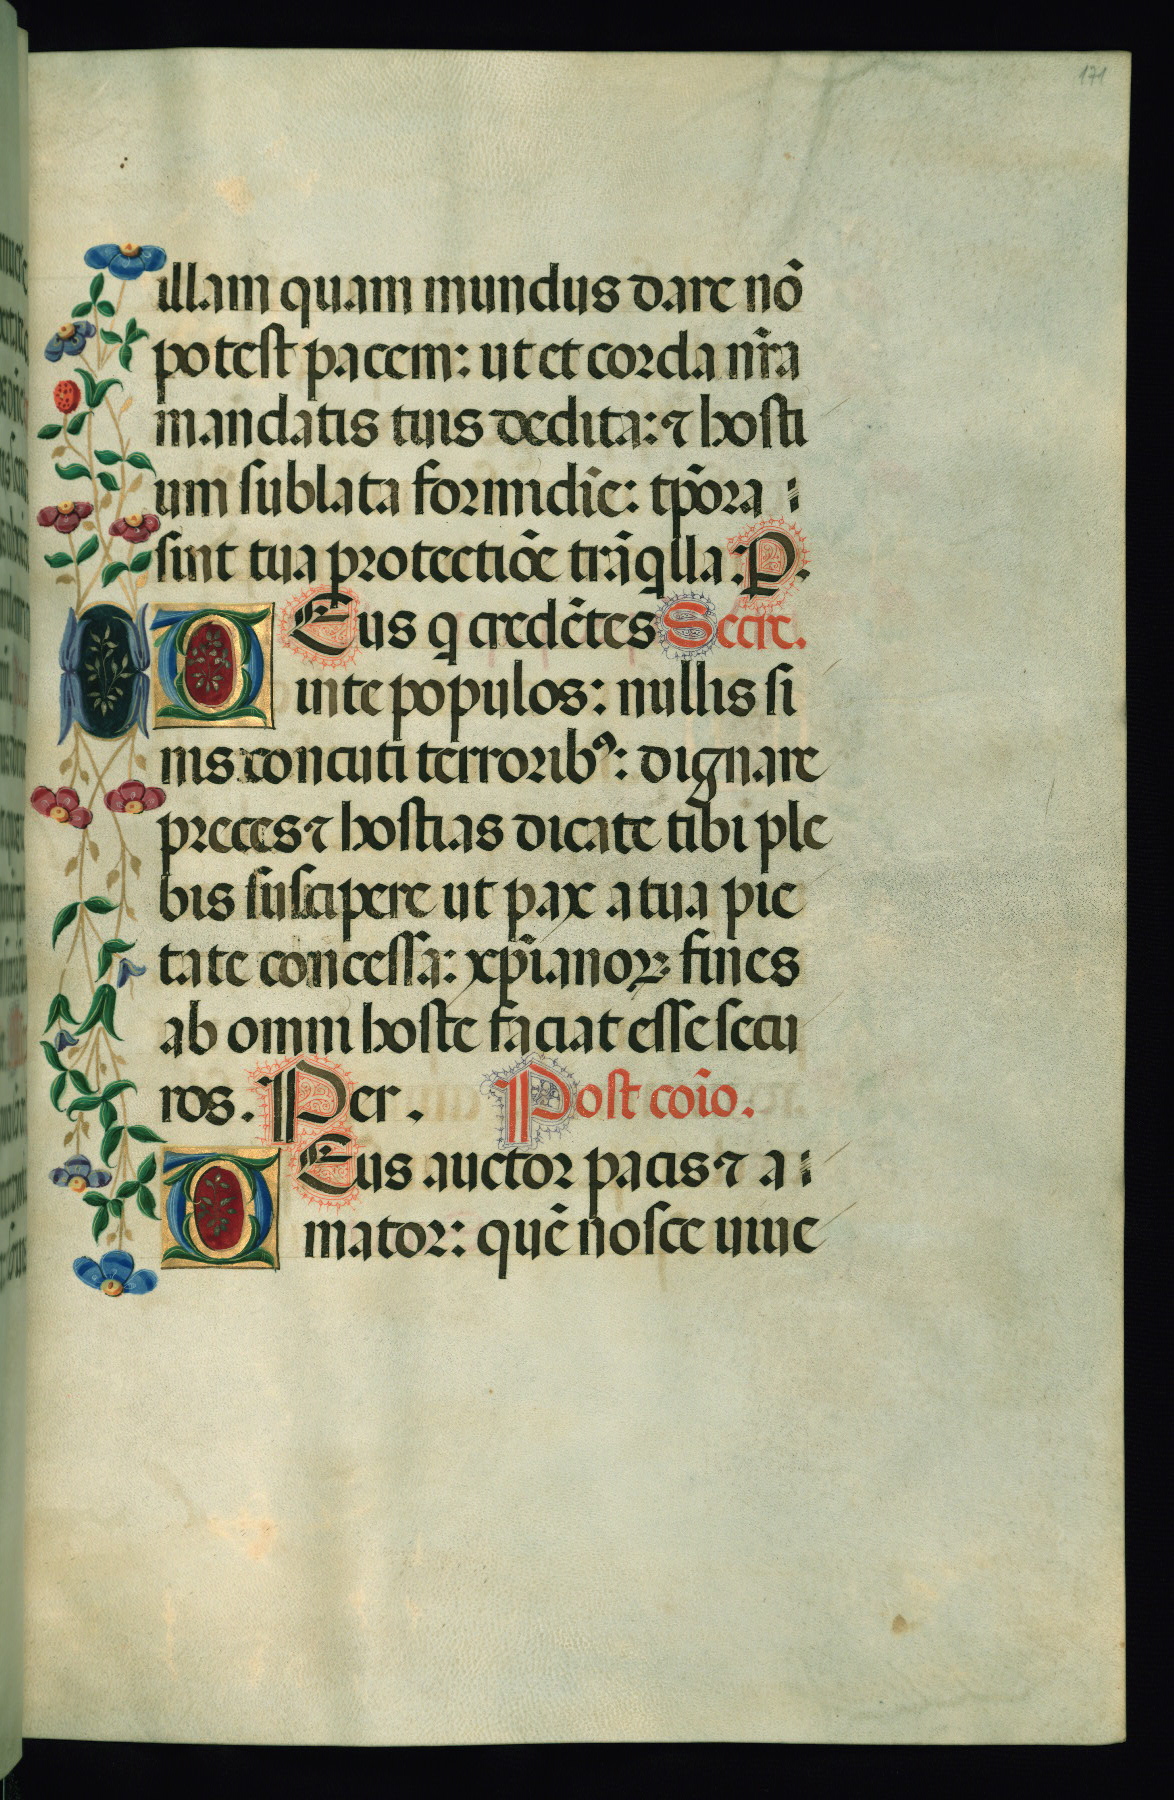 171
illam quam mundus dare nõ
potest pacem: ut et corda nr̃a
mandatis tuis dedita: ⁊ hosti
um sublata formidĩe: tp̃ora
sint tua protectiõe trãq̃lla: P.
DEus q credẽtes Secre.
in te populos: nullis si
nis concuti terroribꝰ: dignare
preces ⁊ hostias dicate tibi ple
bis suscipere ut pax a tua pie
tate concessa: xp̃ianoꝝ fines
ab omni hoste faciat esse secu
ros. Per. Post coĩo.
DEus auctor pacis ⁊ a
mator: quẽ nosce uiue